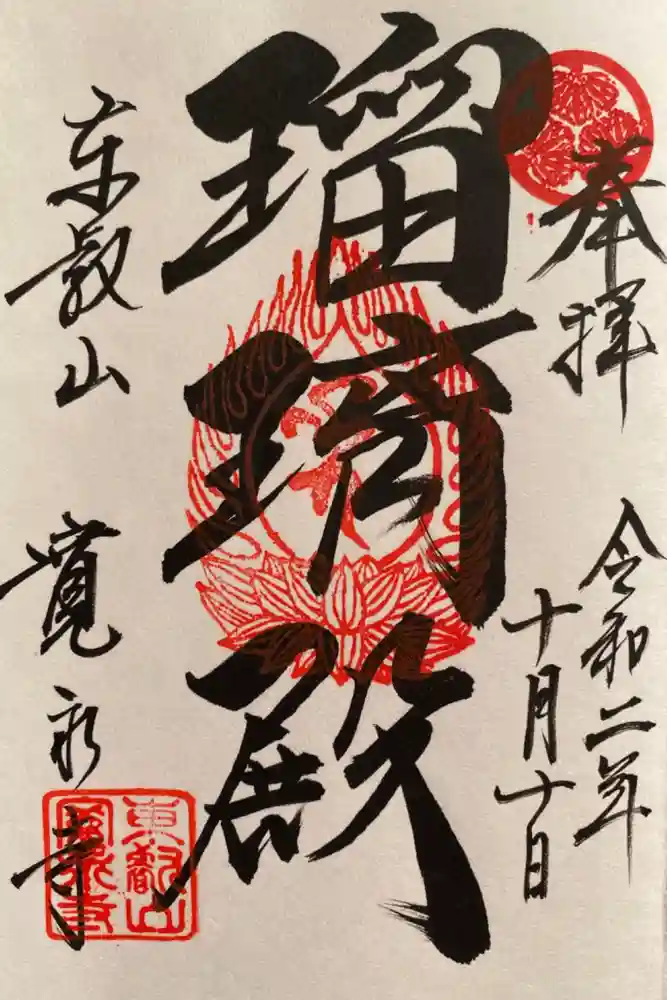 奉拝
令和二年
十月十日
瑠璃殿
東叡山
寛永寺
東叡山
寛永寺